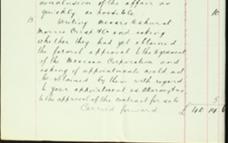 conclusion of the affair as
quickly as possible. 10
13 Writing Messrs Ashurst
Morris Crisp & Co and asking
whether they had yet obtained
the formal approval to the agreement
of the Mexican Corporation and
asking if appointments could not
be obtained by them with regard
to your appointment as
to the approval of the contract for sale 5
Carried forward £